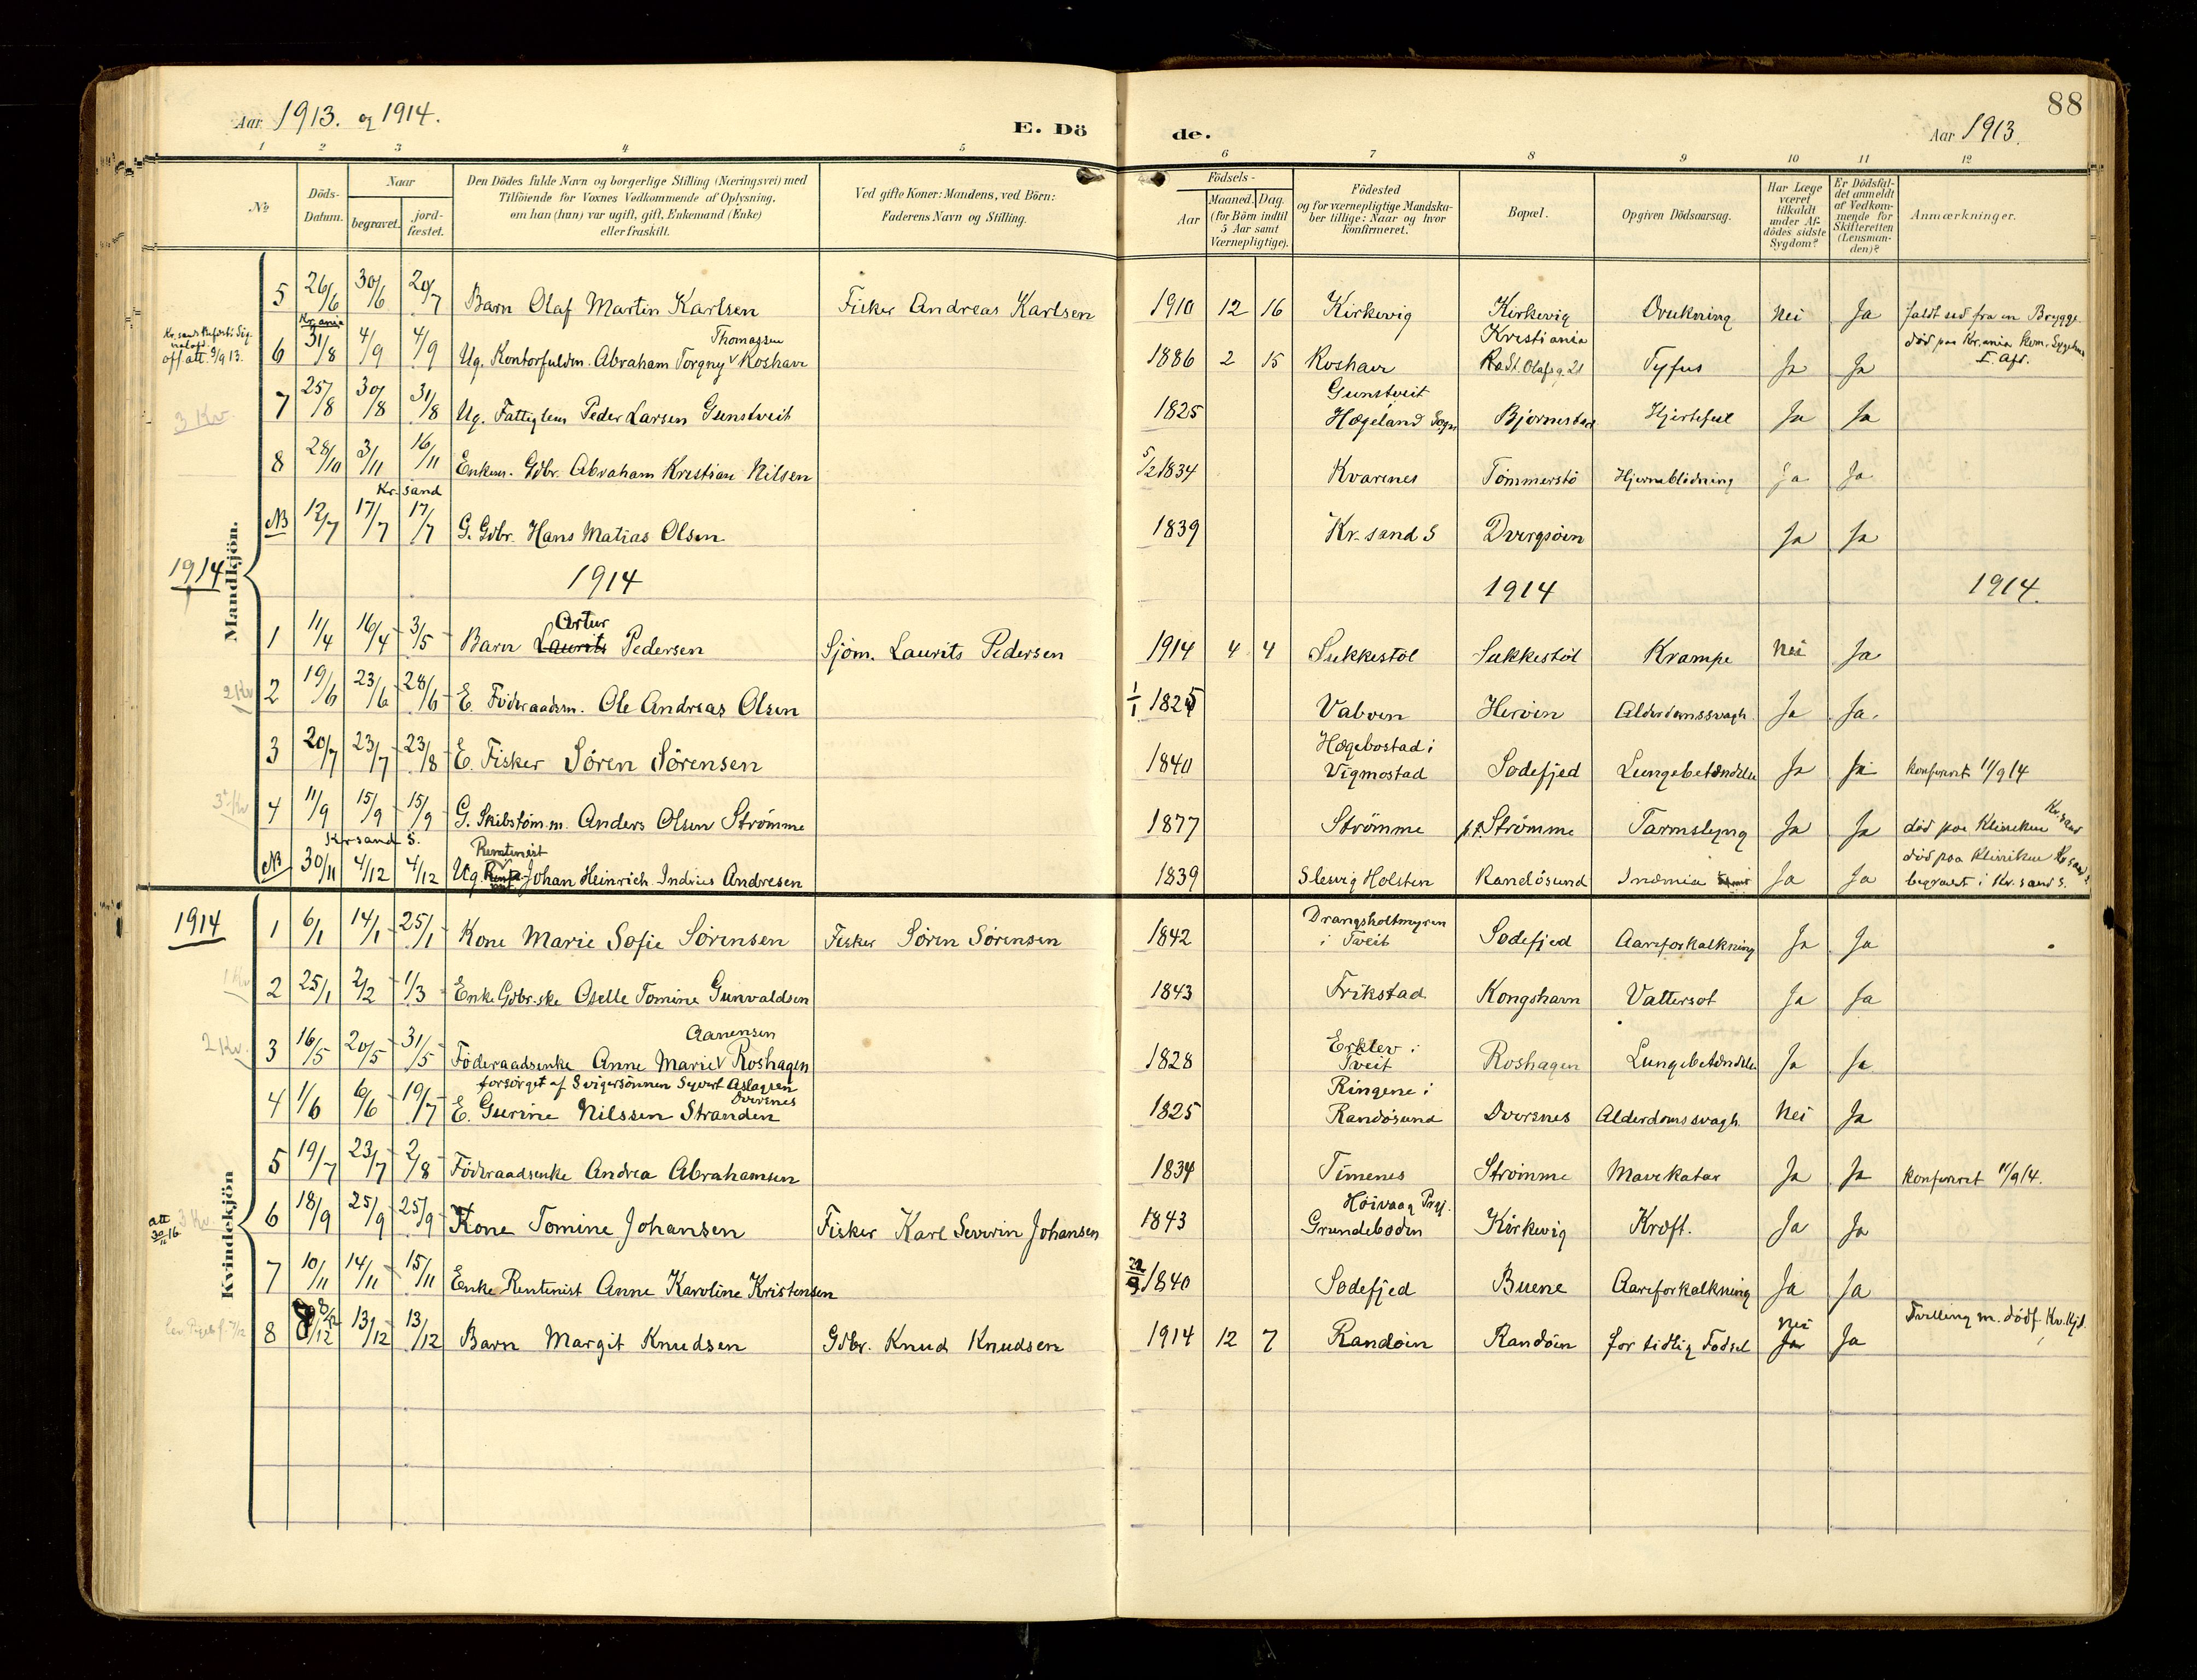 88
Aar 1913. og 1914.
E. Dö
de.
Aar 1913.
1 2 3 4 5
6 7 8 9 10 11 12
No
Döds-Datum.
Naar
begravet.
jord-fæstet.
Den Dödes fulde Navn og borgerlige Stilling (Næringsvei) med
Tilföiende for Voxnes Vedkommende af Oplysning,
om han (hun) var ugift, gift, Enkemand (Enke)
eller fraskilt.
Ved gifte Koner: Mandens, ved Börn:
Faderens Navn og Stilling.
Födsels-
Aar
Maaned. Dag.
(for Börn indtil
5 Aar samt
Værnepligtige).
Födested
og for værnepligtige Mandska-
ber tillige: Naar og hvor
konfirmeret.
Bopæl.
Opgiven Dödsaarsag.
Har Læge
været
tilkaldt
under Af-
dödes sidste
Sygdom?
Er Dödsfal-
det anmeldt
af Vedkom-
mende for
Skifteretten
(Lensman-
den)?
Anmærkninger.
Mandkjön.
5 26/6 30/6 20/7 Barn Olaf Martin Karlsen Fisker Andreas Karlsen 1910 12 16 Kirkevig Kirkevig Drukning Nei Ja faldt ud fra en Brygge.
Kr.ania Thomassen Kristiania død paa Kr.ania Kom. Sygehus
off att. 9/9 13. 6 31/8 4/9 4/9 Ug. Kontorfuldm. Abraham Torgny Roshavn 1886 2 15 Roshavn St. Olafs g. 21 Tyfus Ja Ja I. Afd.
Gunstveit
3 Kv. 7 25/8 30/8 31/8 Ug. Fattiglem Peder Larsen Gunstveit 1825 Hægeland Sogn Bjørnestad Hjertefeil Ja Ja
8 28/10 3/11 16/11 Enkem. Gdbr. Abraham Kristian Nilsen 5/2 1834 Kvarenes Tømmerstø Hjerneblødning Ja Ja
Kr.sand
NB 12/7 17/7 17/7 G. Gdbr. Hans Matias Olsen 1839 Kr.sand S Dvergsøen Ja Ja
1914 1914 1914 1914.
Artur
1 11/4 16/4 3/5 Barn Laurits Pedersen Sjøm. Laurits Pedersen 1914 4 4 Sukkestøl Sukkestøl Krampe Nei Ja
2 Kv 2 19/6 23/6 28/6 E. Føderaadsm. Ole Andreas Olsen 1/1 1825 Valøen Herøen Alderdomssvagh. Ja Ja.
Hægebostad i
3 20/7 23/7 23/8 E. Fisker Søren Sørensen 1840 Vigmostad Sodefjed Lungebetændelse Ja Ja konfereret 11/9 14
3 Kv 4 11/9 15/9 15/9 G. Skibstøm.m. Anders Olsen Strømme 1877 Strømme p.t. Strømme Tarmslyng Ja Ja død paa Kliniken Kr.sand
Kr.sand S. Rentenist død paa Kliniken Kr.sand S.
NB 30/11 4/12 4/12 Ug. Johan Heinrich Indrius Andresen 1839 Slesvig Holsten Randøsund Ja Ja begravet i Kr.sand S.
Kvindekjön
1914
Drangsholtmyren
1 6/1 14/1 25/1 Kone Marie Sofie Sørensen Fisker Søren Sørensen 1842 i Tveit Sodefjed Aareforkalkning Ja Ja
1 Kv 2 25/1 2/2 1/3 Enke Gdbr.ske Oselle Tomine Gunvaldsen 1843 Frikstad Kongshavn Vattersot Ja Ja
Aanensen Erklev i
2 Kv. 3 16/5 20/5 31/5 Føderaadsenke Anne Marie Roshagen 1828 Tveit Roshagen Lungebetændelse Ja Ja
forsørget af Svigersønnen Syvert Aslagsen Dversnes Ringene i
4 1/6 6/6 19/7 E. Gurine Nilssen Stranden 1825 Randøsund Dversnes Alderdomssvagh. Nei Ja
5 19/7 23/7 2/8 Føderaadsenke Andrea Abrahamsen 1834 Timenes Strømme Mavekatar Ja Ja konfereret 11/9 14.
Høivaag Prgj.
att 30/11 16. 3 Kv. 6 18/9 25/9 25/9 Kone Tomine Johansen Fisker Karl Severin Johansen 1843 Grundeboden Kirkevig Kræft. Ja Ja
7 10/11 14/11 15/11 Enke Rentenist Anne Karoline Kristensen 22/9 1840 Sodefjed Buene Aareforkalkning Ja Ja
Nei Tvilling m. dødf. Kv.kjd.
8 8/12 13/12 13/12 Barn Margit Knudsen Gdbr. Knud Knudsen 1914 12 7 Randøen Randøen for tidlig Fødsel Ja Ja